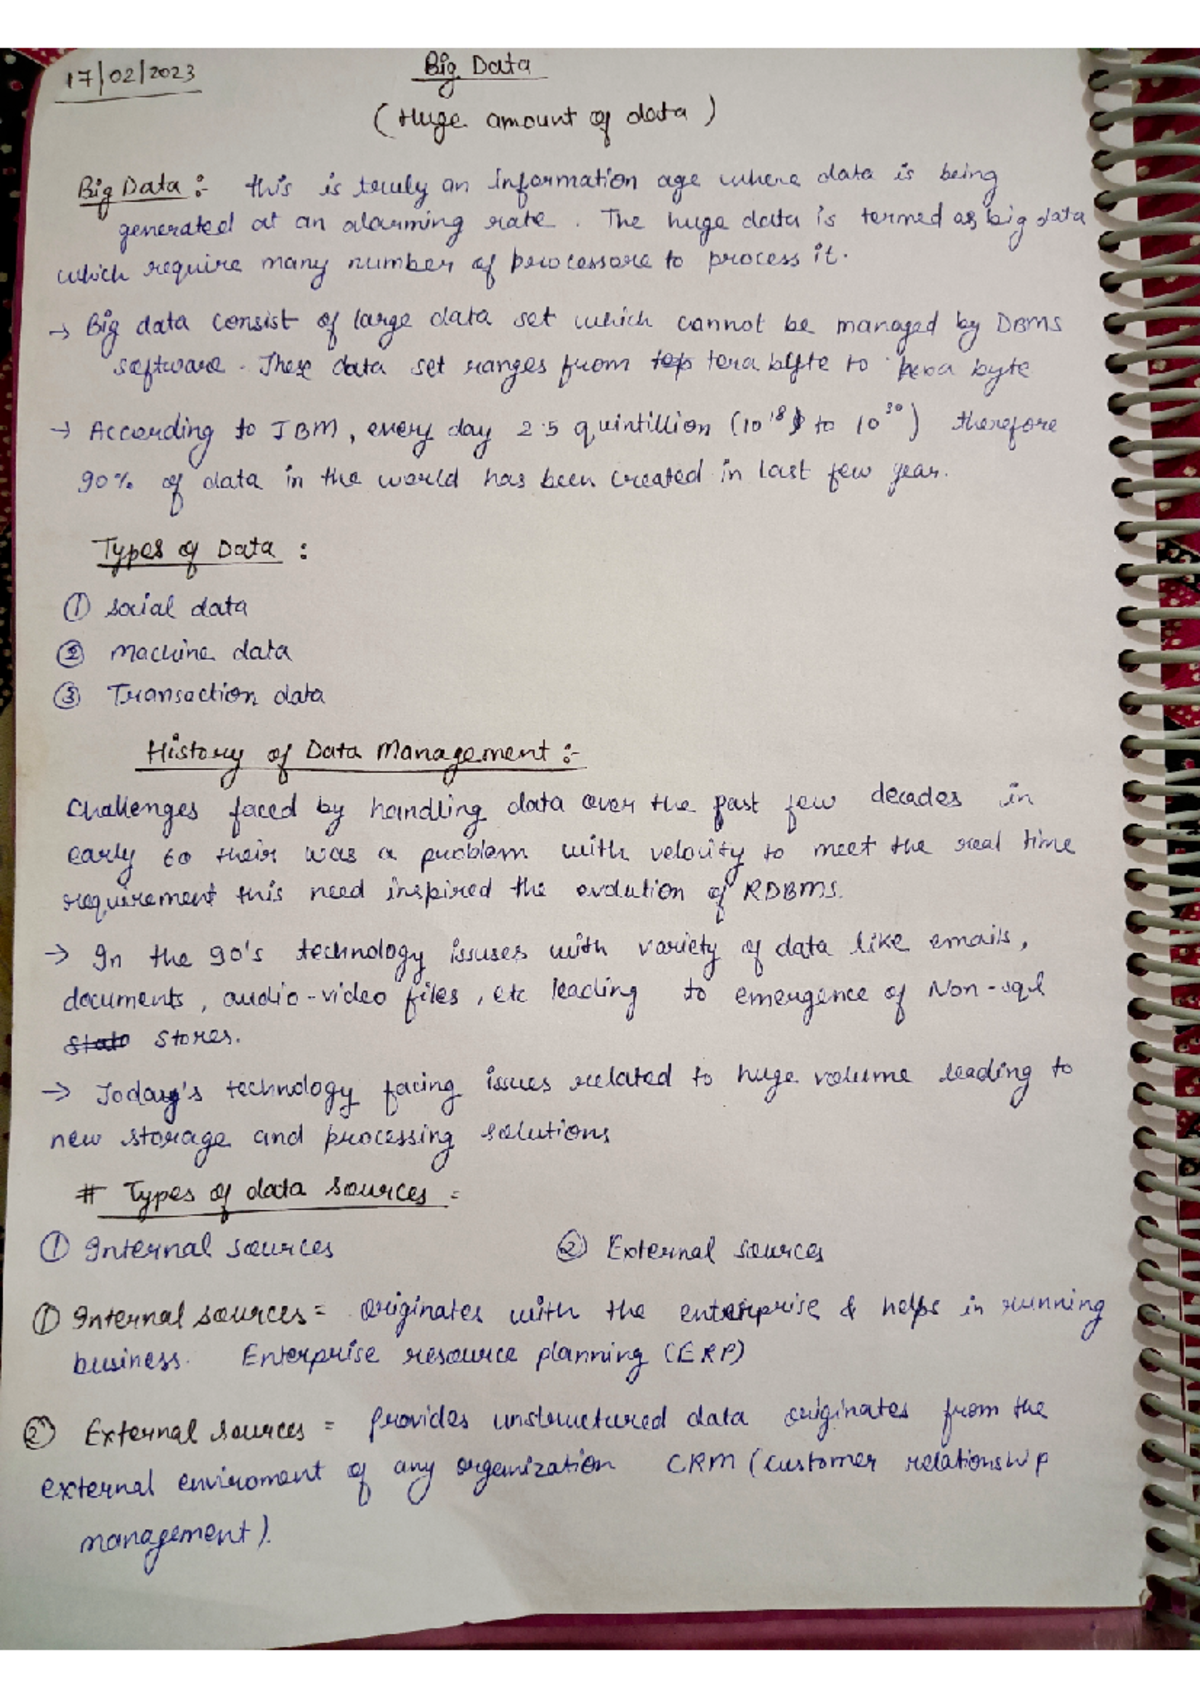 17/02/2023
Big Data
(Huge amount of data)
Big Data :- this is truly an information age where data is being
generated at an alarming rate. The huge data is termed as big data
which require many number of processore to process it.
→ Big data consist of large data set which cannot be managed by DBMS
software. These data set ranges from tera byte to byte
→ According to IBM, every day 2.5 quintillion (10^18 to 10^30) therefore
90% of data in the world has been created in last few year.
Types of Data :
① social data
② Machine data
③ Transaction data
History of Data Management :-
Challenges faced by handling data over the past few decades in
early 60 their was a problem with velocity to meet the real time
requirement this need inspired the evolution of RDBMS.
→ In the 90's technology issuses with variety of data like emails,
documents, audio-video files, etc leading to emergence of Non-sql
Stores.
→ Today's technology facing issues related to huge volume leading to
new storage and processing solutions
# Types of data sources =
① Internal sources ② External sources
① Internal sources = originates with the enterprise & helps in running
business. Enterprise resource planning (ERP)
② External sources = provides unstructured data originates from the
external enviroment of any organization CRM (Customer relationship
management).